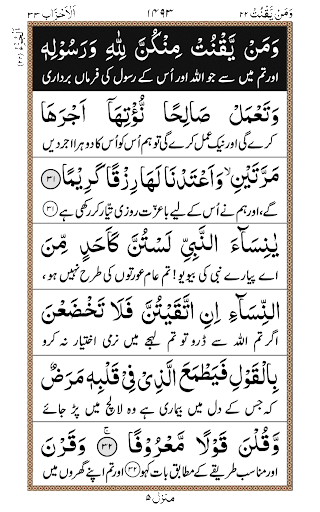 وَمَنْ يَّقْنُتْ ٢٢ ١٤٩٣ اَلْاَحْزَاب ٣٣
وَمَنْ يَّقْنُتْ مِنْكُنَّ لِلّٰهِ وَرَسُوْلِهٖ
اور تم میں سے جو اللہ اور اُس کے رسول کی فرماں برداری
وَتَعْمَلْ صَالِحًا نُّؤْتِهَآ اَجْرَهَا
کرے گی اور نیک عمل کرے گی تو ہم اُس کو اُس کا دوہرا اجر دیں
مَرَّتَيْنِ ۙ وَاَعْتَدْنَا لَهَا رِزْقًا كَرِيْمًا ﴿٣١﴾
گے، اور ہم نے اُس کے لیے باعزّت روزی تیّار کر رکھی ہے ﴿٣١﴾
يٰنِسَآءَ النَّبِيِّ لَسْتُنَّ كَاَحَدٍ مِّنَ
اے پیارے نبی کی بیویو! تم عام عورتوں کی طرح نہیں ہو،
النِّسَآءِ اِنِ اتَّقَيْتُنَّ فَلَا تَخْضَعْنَ
اگر تم اللہ سے ڈرو تو تم لہجے میں نرمی اختیار نہ کرو
بِالْقَوْلِ فَيَطْمَعَ الَّذِيْ فِيْ قَلْبِهٖ مَرَضٌ
کہ جس کے دل میں بیماری ہے وہ لالچ میں پڑ جائے
وَّقُلْنَ قَوْلًا مَّعْرُوْفًا ﴿٣٢﴾ وَقَرْنَ
اور مناسب طریقے کے مطابق بات کہو ﴿٣٢﴾ اور تم اپنے گھروں میں
منزل ٥